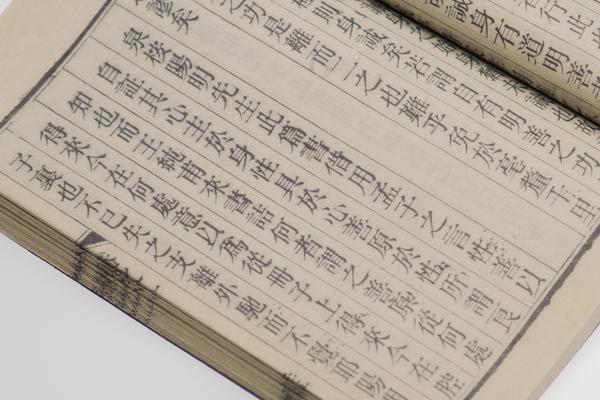 誠身有道明善者
則身誠矣若謂自有明善之功
之功是離而二之也難乎免於毫釐千里
謬矣
泉桉陽明先生此篇書借用孟子之言性善以
自証其心主於身性具於心善原於性所謂良
知也而王純甫來書詰何者謂之善原從何處
得來今在何處意以爲從冊子上得來今在腔
子裏也不已失之支離外馳而不覺耶陽明